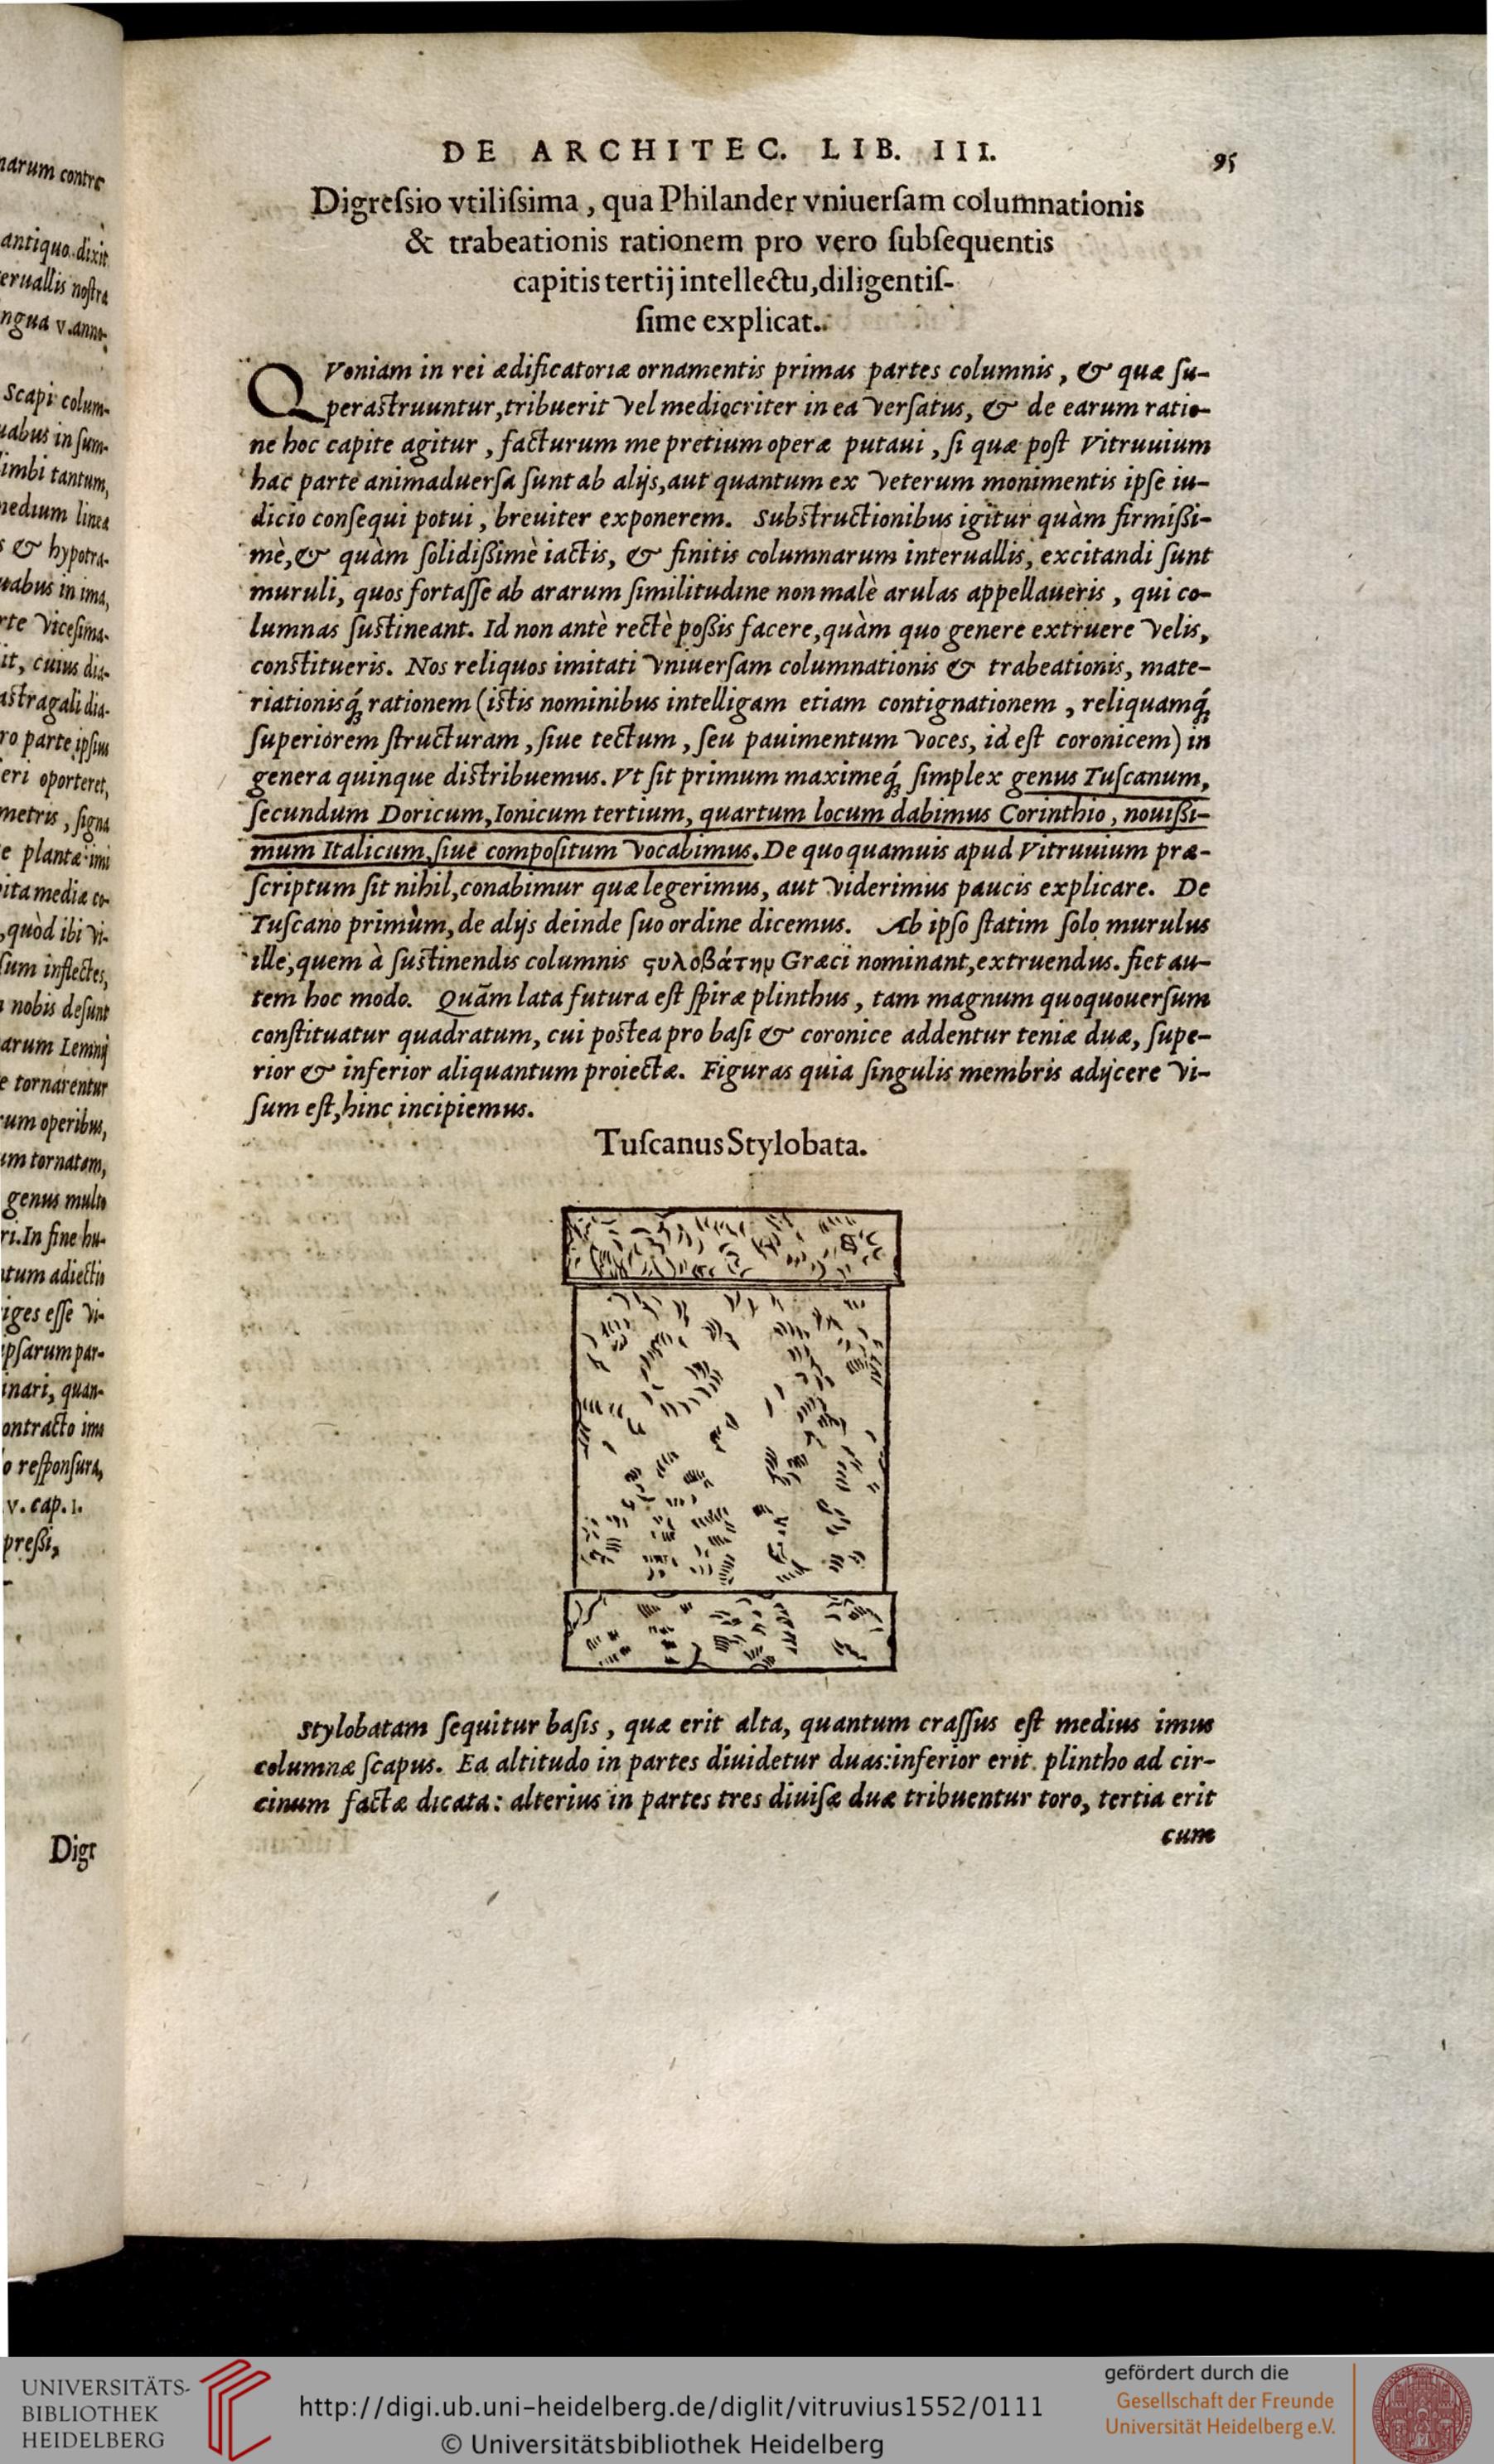 narum contra
antiquo dixit
eruallis noſtra
ngua v.anno-
Scapi colum-
uabus in ſum-
limbi tantum,
medium linea
s & hypotra-
uabus in ima,
rte viceſima-
it, cuius dia-
aſtragali dia-
ro parte ipſius
eri oporteret,
metris, ſigna
e plantæ imi
ita mediæ co-
, quòd ibi vi-
ſum inflectes,
nobis deſunt
arum Lemnij
e tornarentur
rum operibus,
um tornatam,
genus multo
ri. In fine hu-
tum adiectio
iges eſſe vi-
pſarum par-
inari, quan-
ontracto imo
o reſponſura,
v. cap. 1.
preſſi,
Digr
DE ARCHITEC. LIB. III. 95
Digreſsio vtiliſsima, qua Philander vniuerſam columnationis
& trabeationis rationem pro vero ſubſequentis
capitis tertij intellectu, diligentiſ-
ſime explicat.
QVoniam in rei ædificatoriæ ornamentis primas partes columnis, & quæ ſu-
peraſtruuntur, tribuerit vel mediocriter in ea verſatus, & de earum ratio-
ne hoc capite agitur, facturum me pretium operæ putaui, ſi quæ poſt Vitruuium
hac parte animaduerſa ſunt ab alijs, aut quantum ex veterum monimentis ipſe iu-
dicio conſequi potui, breuiter exponerem. Subſtructionibus igitur quàm firmiſſi-
mè, & quàm ſolidiſſimè iactis, & finitis columnarum interuallis, excitandi ſunt
muruli, quos fortaſſe ab ararum ſimilitudine non malè arulas appellaueris, qui co-
lumnas ſuſtineant. Id non antè rectè poſſis facere, quàm quo genere extruere velis,
conſtitueris. Nos reliquos imitati vniuerſam columnationis & trabeationis, mate-
riationisq́; rationem (iſtis nominibus intelligam etiam contignationem, reliquamq́;
ſuperiorem ſtructuram, ſiue tectum, ſeu pauimentum voces, id eſt coronicem) in
genera quinque diſtribuemus. Vt ſit primum maximeq́; ſimplex genus Tuſcanum,
ſecundum Doricum, Ionicum tertium, quartum locum dabimus Corinthio, nouiſſi-
mum Italicum, ſiue compoſitum vocabimus. De quo quamuis apud Vitruuium præ-
ſcriptum ſit nihil, conabimur quæ legerimus, aut viderimus paucis explicare. De
Tuſcano primùm, de alijs deinde ſuo ordine dicemus. Ab ipſo ſtatim ſolo murulus
ille, quem à ſuſtinendis columnis ϛυλοβάτην Græci nominant, extruendus. fiet au-
tem hoc modo. Quãm lata futura eſt ſpiræ plinthus, tam magnum quoquouerſum
conſtituatur quadratum, cui poſtea pro baſi & coronice addentur teniæ duæ, ſupe-
rior & inferior aliquantum proiectæ. Figuras quia ſingulis membris adijcere vi-
ſum eſt, hinc incipiemus.
Tuſcanus Stylobata.
Stylobatam ſequitur baſis, quæ erit alta, quantum craſſus eſt medius imus
columnæ ſcapus. Ea altitudo in partes diuidetur duas: inferior erit plintho ad cir-
cinum factæ dicata: alterius in partes tres diuiſæ duæ tribuentur toro, tertia erit
cum
UNIVERSITÄTS-
BIBLIOTHEK
HEIDELBERG
http://digi.ub.uni-heidelberg.de/diglit/vitruvius1552/0111
© Universitätsbibliothek Heidelberg
gefördert durch die
Gesellschaft der Freunde
Universität Heidelberg e.V.